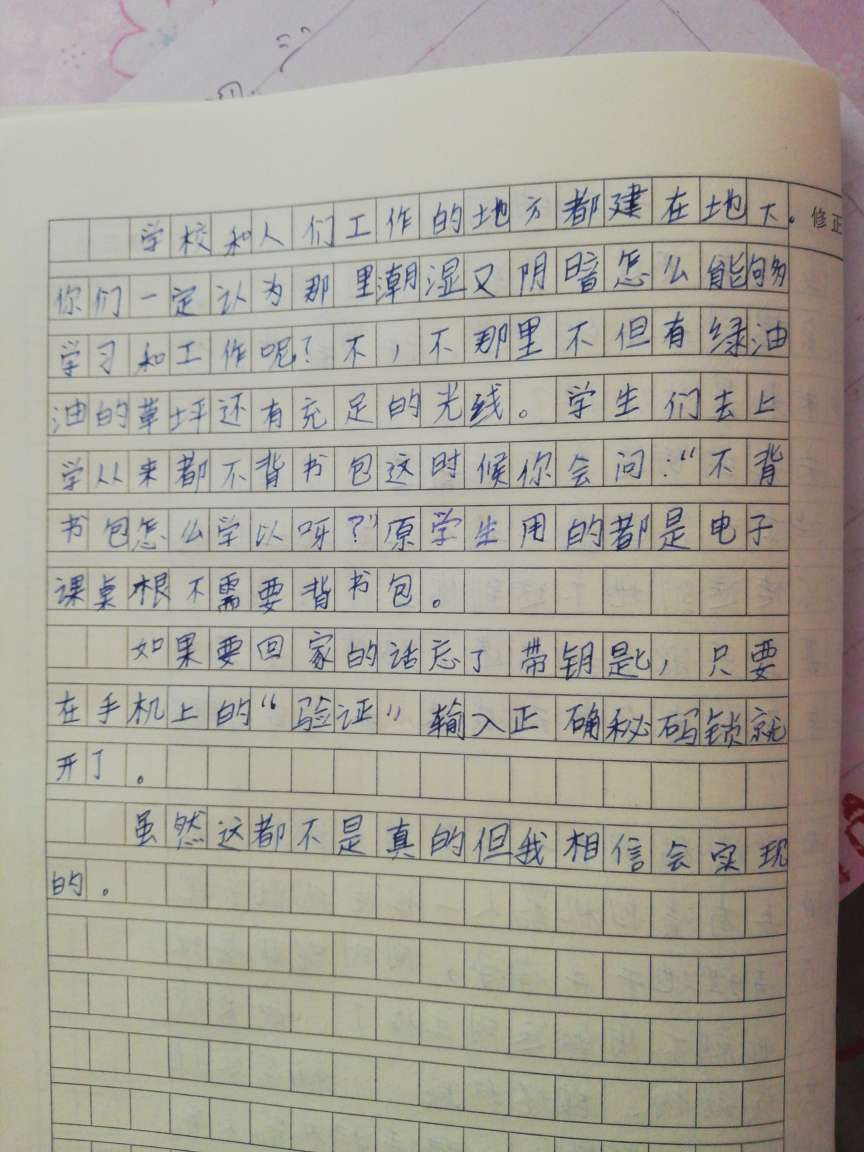 学校和人们工作的地方都建在地下。
修正
你们一定认为那里潮湿又阴暗怎么能够
学习和工作呢？不，不那里不但有绿油
油的草坪还有充足的光线。学生们去上
学从来都不背书包这时候你会问：“不背
书包怎么学以呀？”原学生用的都是电子
课桌根不需要背书包。
如果要回家的话忘了带钥匙，只要
在手机上的“验证”输入正确秘码锁就
开了。
虽然这都不是真的但我相信会实现
的。